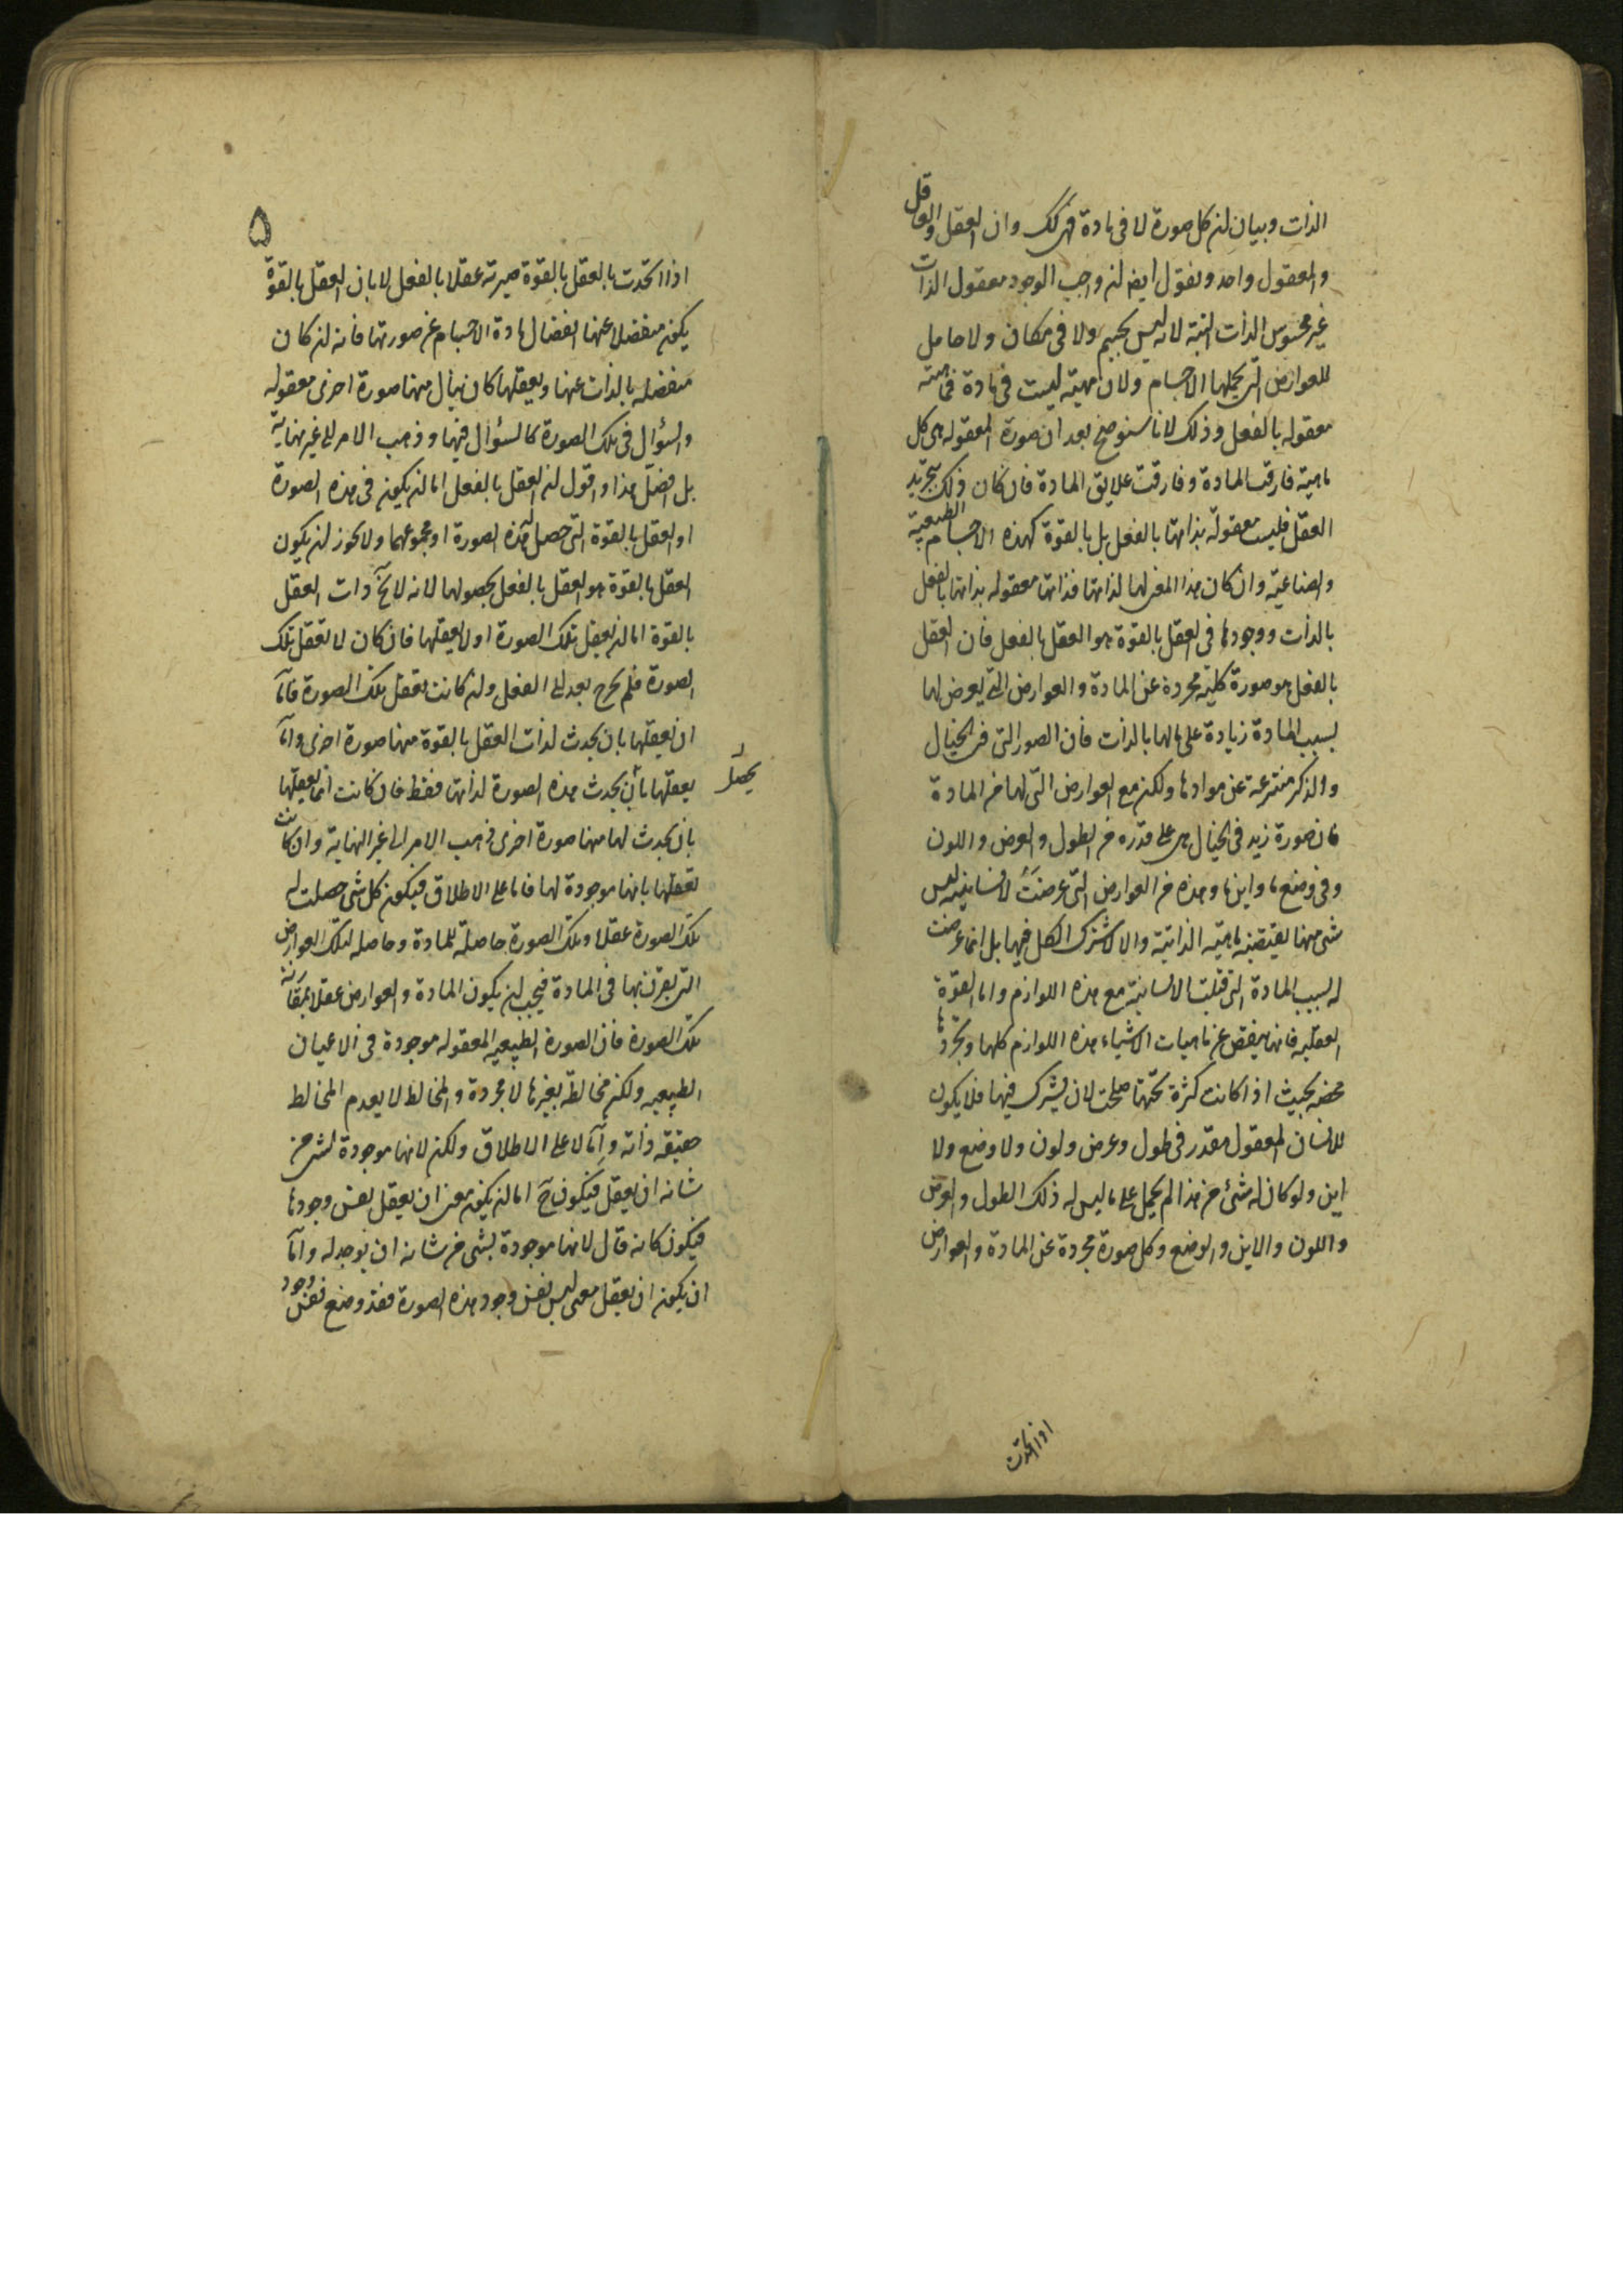 الذات وبيان لن كل صورة لا فى مادة فهى كك وان العقل والعاقل
والمعقول واحد ونقول ايضا لن واجب الوجود معقول الذات
غير محسوس الذات البتة لانه ليس بجسم ولا فى مكان ولا حامل
للعوارض التى يحملها الاجسام ولان مهيته ليست فى مادة فماهيته
معقوله بالفعل وذلك لانا سنوضح بعد ان صورة المعقوله هى كل
ماهية فارقت المادة وفارقت علايق المادة فان كان ذلك بتجريد
العقل فليست معقولة بذاتها بالفعل بل بالقوة كهذه الاجسام الطبيعية
والصناعية وان كان هذا المعنى لها لذاتها فذاتها معقوله بذاتها بالفعل
بالذات ووجودها فى العقل بالقوة هو العقل بالفعل فان العقل
بالفعل هو صورة كلية مجردة عن المادة والعوارض التى يعرض لها
بسبب المادة زيادة على مالها بالذات فان الصور التى فى الخيال
والذكر منتزعة عن موادها ولكن مع العوارض التى لها من المادة
فان صورة زيد فى الخيال هى على قدره من الطول والعرض واللون
وفى وضع ما واين ما وهذه من العوارض التى عرضت لانسانيته ليس
شى منها يقتضيه ماهيته الذاتية والا لاشترك الكل فيها بل انما عرضت
له بسبب المادة التى قبلت الانسانية مع هذه اللوازم واما القوة
العقليه فانها ينفض عن ماهيات الاشياء هذه اللوازم كلها ويجردها
محضه بحيث اذا كانت كثرة تحتها صلحت لان يشترك فيها فلا يكون
للانسان المعقول مقدر فى طول وعرض ولون ولا وضع ولا
اين ولو كان له شئ من هذا لم يحمل على ما ليس له ذلك الطول والعرض
واللون والاين والوضع وكل صورة مجردة عن المادة والعوارض
اذا اتحدت
۵
اذا اتحدت بالعقل بالقوة صيرته عقلا بالفعل لا بان العقل بالقوة
يكون منفصلا عنها انفصال مادة الاجسام عن صورتها فانه لن كان
منفصله بالذات عنها ويعقلها كان ينال منها صورة اخرى معقوله
والسؤال فى تلك الصورة كالسؤال فيها وذهب الامر الى غير نهاية
بل افصل هذا واقول لن العقل بالفعل اما لن يكون فى هذه الصورة
او العقل بالقوة التى حصل له هذه الصورة او مجموعهما ولا يجوز لن يكون
العقل بالقوة هو العقل بالفعل بحصولها لانه لا يخ ذات العقل
بالقوة اما لن يعقل تلك الصورة اولا يعقلها فان كان لا تعقل تلك
الصورة فلم يخرج بعد الى الفعل ولن كانت تعقل تلك الصورة فاما
ان يعقلها بان يحدث لذات العقل بالقوة منها صورة اخرى واما
يعقلها بان يحدث هذه الصورة لذاتها فقط فان كانت انما يعقلها
يحصل
بان يحدث لها منها صورة اخرى ذهب الامر الى غير النهاية وان كانت
تعقلها بانها موجودة لها فاما على الاطلاق فيكون كل شى حصلت له
تلك الصورة عقلا وتلك الصورة حاصلة للمادة وحاصله لتلك العوارض
التى يقرن بها فى المادة فيجب لن يكون المادة والعوارض عقلا بمقارنة
تلك الصورة فان الصورة الطبيعيه المعقوله موجودة فى الاعيان
الطبيعيه ولكن مخالطة بغيرها لا مجردة والمخالط لا يعدم المخالط
حقيقه ذاته واما لا على الاطلاق ولكن لانها موجودة لشى من
شانه ان يعقل فيكون ح اما لن يكون معنى ان يعقل نفس وجودها
فيكون كانه قال لانها موجودة لشى من شانه ان يوجد له واما
ان يكون ان يعقل معنى ليس نفس وجود هذه الصورة فقد وضع نفس وجود